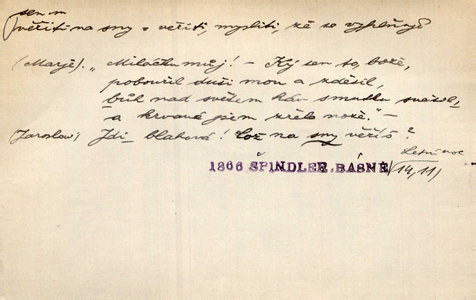 sen m
věřiti na sny = věřiti, mysliti, že se vyplňují
(Marje). „Miláčku můj! – Ký sen to, bože,
pobouřil duši mou a zděsil,
bůh nad světem háv smutku svěsil,
a krvavé jsem zřela nože." –
(Jaroslav) Jdi blahová! Což na sny věříš?
1866 ŠPINDLER BÁSNĚ (14, 11)